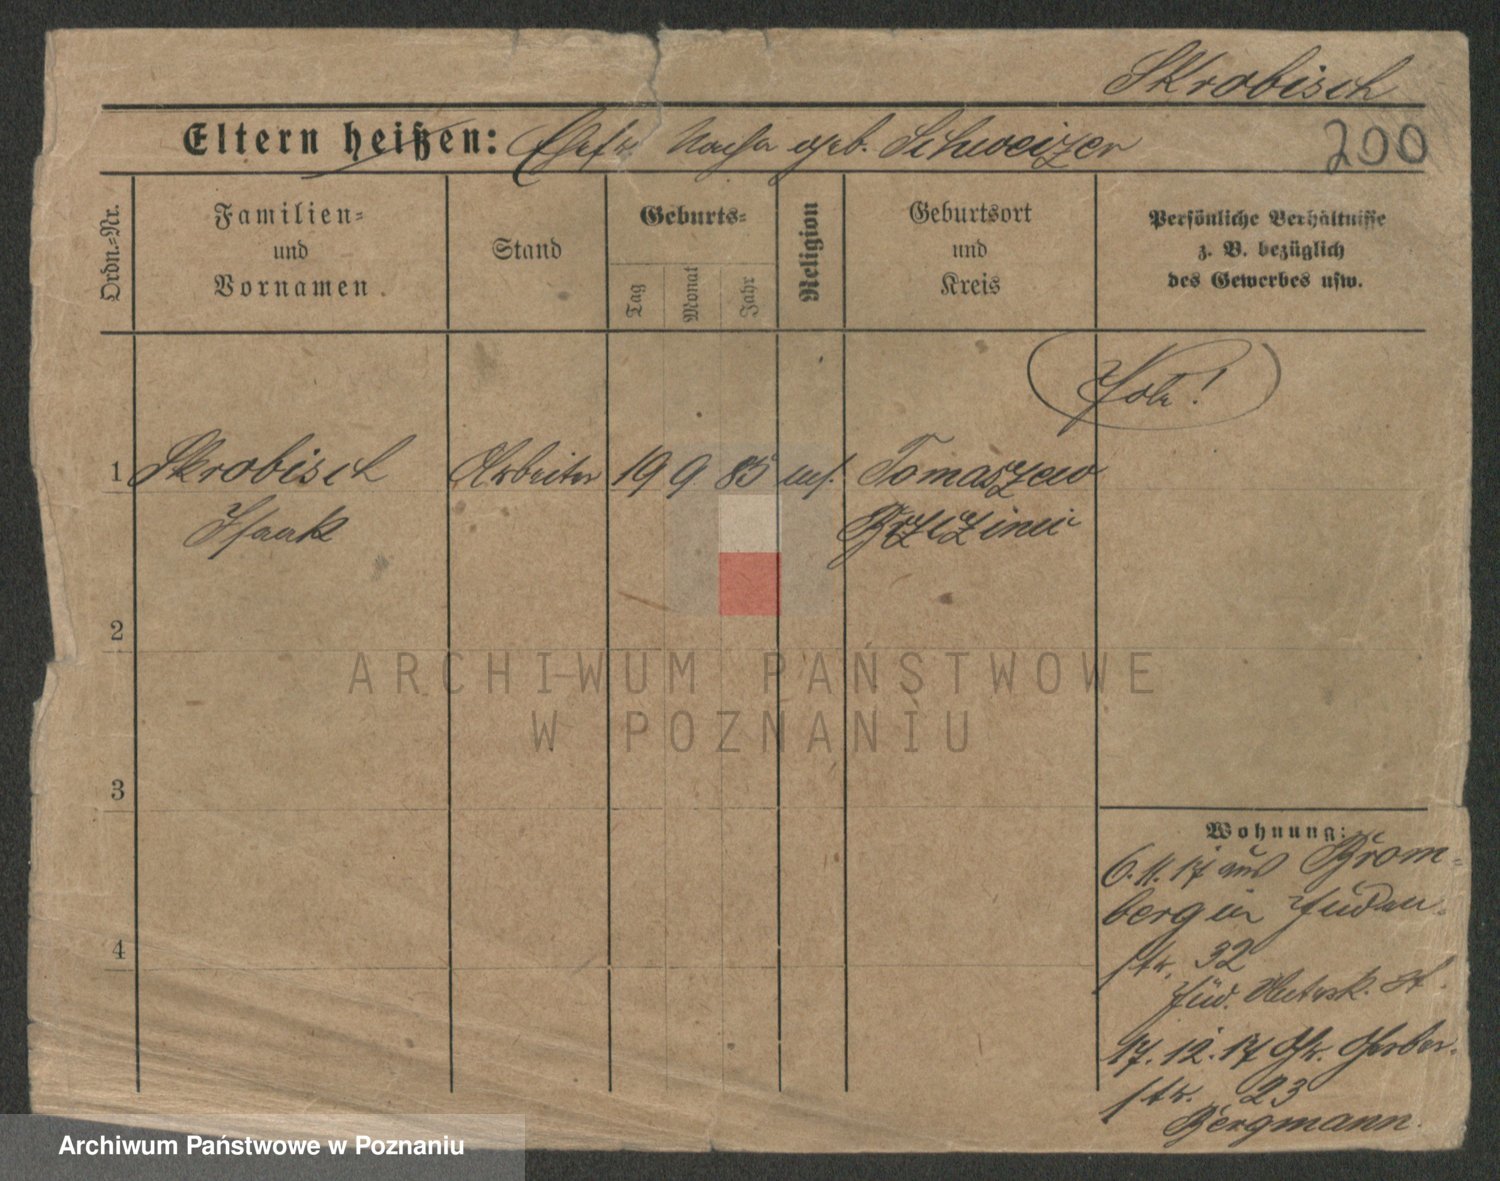 Skrobisch
Eltern heißen: Ehefr. geb. Schweizer
200
Ordn.=Nr.
Familien=
und
Vornamen.
Stand
Geburts=
Tag
Monat
Jahr
Religion
Geburtsort
und
Kreis
Persönliche Verhältnisse
z. B. bezüglich
des Gewerbes usw.
1 Skrobisch Arbeiter 19 9 85 Tomaszew
Isaak Brzezinei
2
3
4
ARCHIWUM PAŃSTWOWE
W POZNANIU
Wohnung:
6.11.17 aus Brom=
berg in Juden=
str. 32
jüd.
17.12.17 Gr. Gerber=
str. 23
Bergmann.
Archiwum Państwowe w Poznaniu